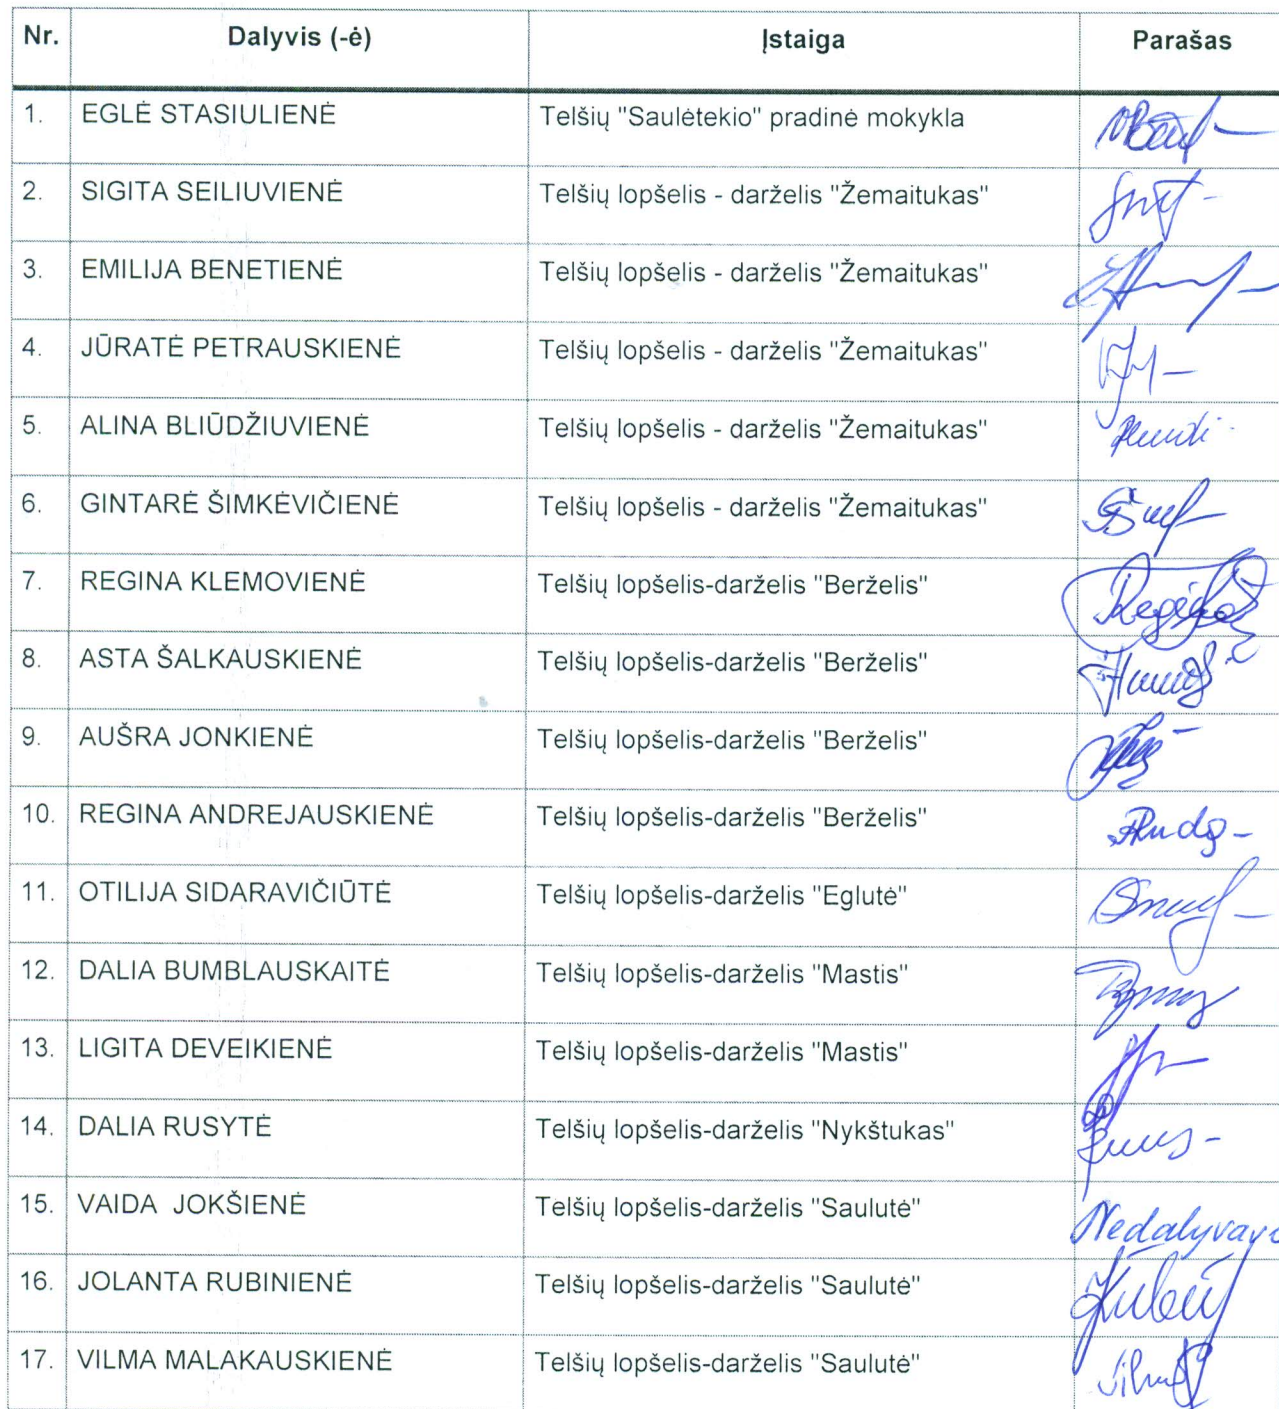 Nr. Dalyvis (-ė) Įstaiga Parašas
1. EGLĖ STASIULIENĖ Telšių "Saulėtekio" pradinė mokykla
2. SIGITA SEILIUVIENĖ Telšių lopšelis - darželis "Žemaitukas"
3. EMILIJA BENETIENĖ Telšių lopšelis - darželis "Žemaitukas"
4. JŪRATĖ PETRAUSKIENĖ Telšių lopšelis - darželis "Žemaitukas"
5. ALINA BLIŪDŽIUVIENĖ Telšių lopšelis - darželis "Žemaitukas"
6. GINTARĖ ŠIMKĖVIČIENĖ Telšių lopšelis - darželis "Žemaitukas"
7. REGINA KLEMOVIENĖ Telšių lopšelis-darželis "Berželis"
8. ASTA ŠALKAUSKIENĖ Telšių lopšelis-darželis "Berželis"
9. AUŠRA JONKIENĖ Telšių lopšelis-darželis "Berželis"
10. REGINA ANDREJAUSKIENĖ Telšių lopšelis-darželis "Berželis"
11. OTILIJA SIDARAVIČIŪTĖ Telšių lopšelis-darželis "Eglutė"
12. DALIA BUMBLAUSKAITĖ Telšių lopšelis-darželis "Mastis"
13. LIGITA DEVEIKIENĖ Telšių lopšelis-darželis "Mastis"
14. DALIA RUSYTĖ Telšių lopšelis-darželis "Nykštukas"
15. VAIDA JOKŠIENĖ Telšių lopšelis-darželis "Saulutė" Nedalyvavo
16. JOLANTA RUBINIENĖ Telšių lopšelis-darželis "Saulutė"
17. VILMA MALAKAUSKIENĖ Telšių lopšelis-darželis "Saulutė"